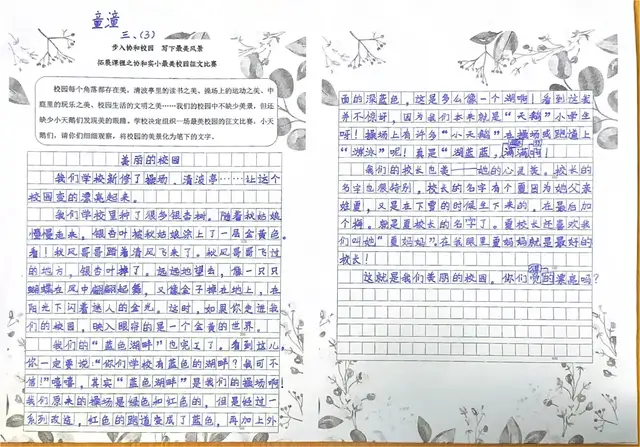 童潼
三、(3)
步入协和校园 写下最美风景
拓展课程之协和实小最美校园征文比赛
校园每个角落都存在美,清波亭里的读书之美、操场上的运动之美、中
庭里的玩乐之美、校园生活的文明之美……我们的校园中不缺少美景,但还
缺少小天鹅们发现美的眼睛。学校决定组织一场最美校园的征文比赛,小天
鹅们,请你们细细观察,将校园的美景化为笔下的文字。
美丽的校园
我们学校新修了操场、清波亭……让这个
校园变的漂亮起来。
我们学校里种了很多银杏树。随着秋姑娘
慢慢走来,银杏叶被秋姑娘涂上了一层金黄色。
看!秋风哥哥踏着清风飞来了。秋风哥哥飞过
的地方,银杏叶掉了。远远地望去,像一只只
蝴蝶在风中翩翩起舞,又像金子掉在地上,在
阳光下闪着迷人的金光。这时,如果你走进我
们的校园,映入眼帘的是一个金黄的世界。
我们的“蓝色湖畔”也完工了。看到这儿,
你一定要说:“你们学校有蓝色的湖畔?我可不
信!”嘻嘻,其实“蓝色湖畔”是我们的操场啊!
我们原来的操场是绿色和红色的,但是经过一
系列改造,红色的跑道变成了蓝色,再加上外
面的深蓝色,这是多么像一个湖啊!看到这我
并不惊讶,因为我们本来就是“天鹅”小学生
呀!操场上有许多“小天鹅”在操场或跑道上
“游泳”呢!真是“湖蓝蓝,满满啊!
我们的校长也美——她的心灵美。校长的
名字也很特别,校长的名字有个夏因为她父亲
姓夏,又是在下雪的时候生下来的。在最后加
个梅。就是夏校长的名字了。夏校长也喜欢我
们叫她“夏妈妈”在我眼里夏妈妈就是最好的
校长!
这就是我们美丽的校园。你们觉得漂亮吗?